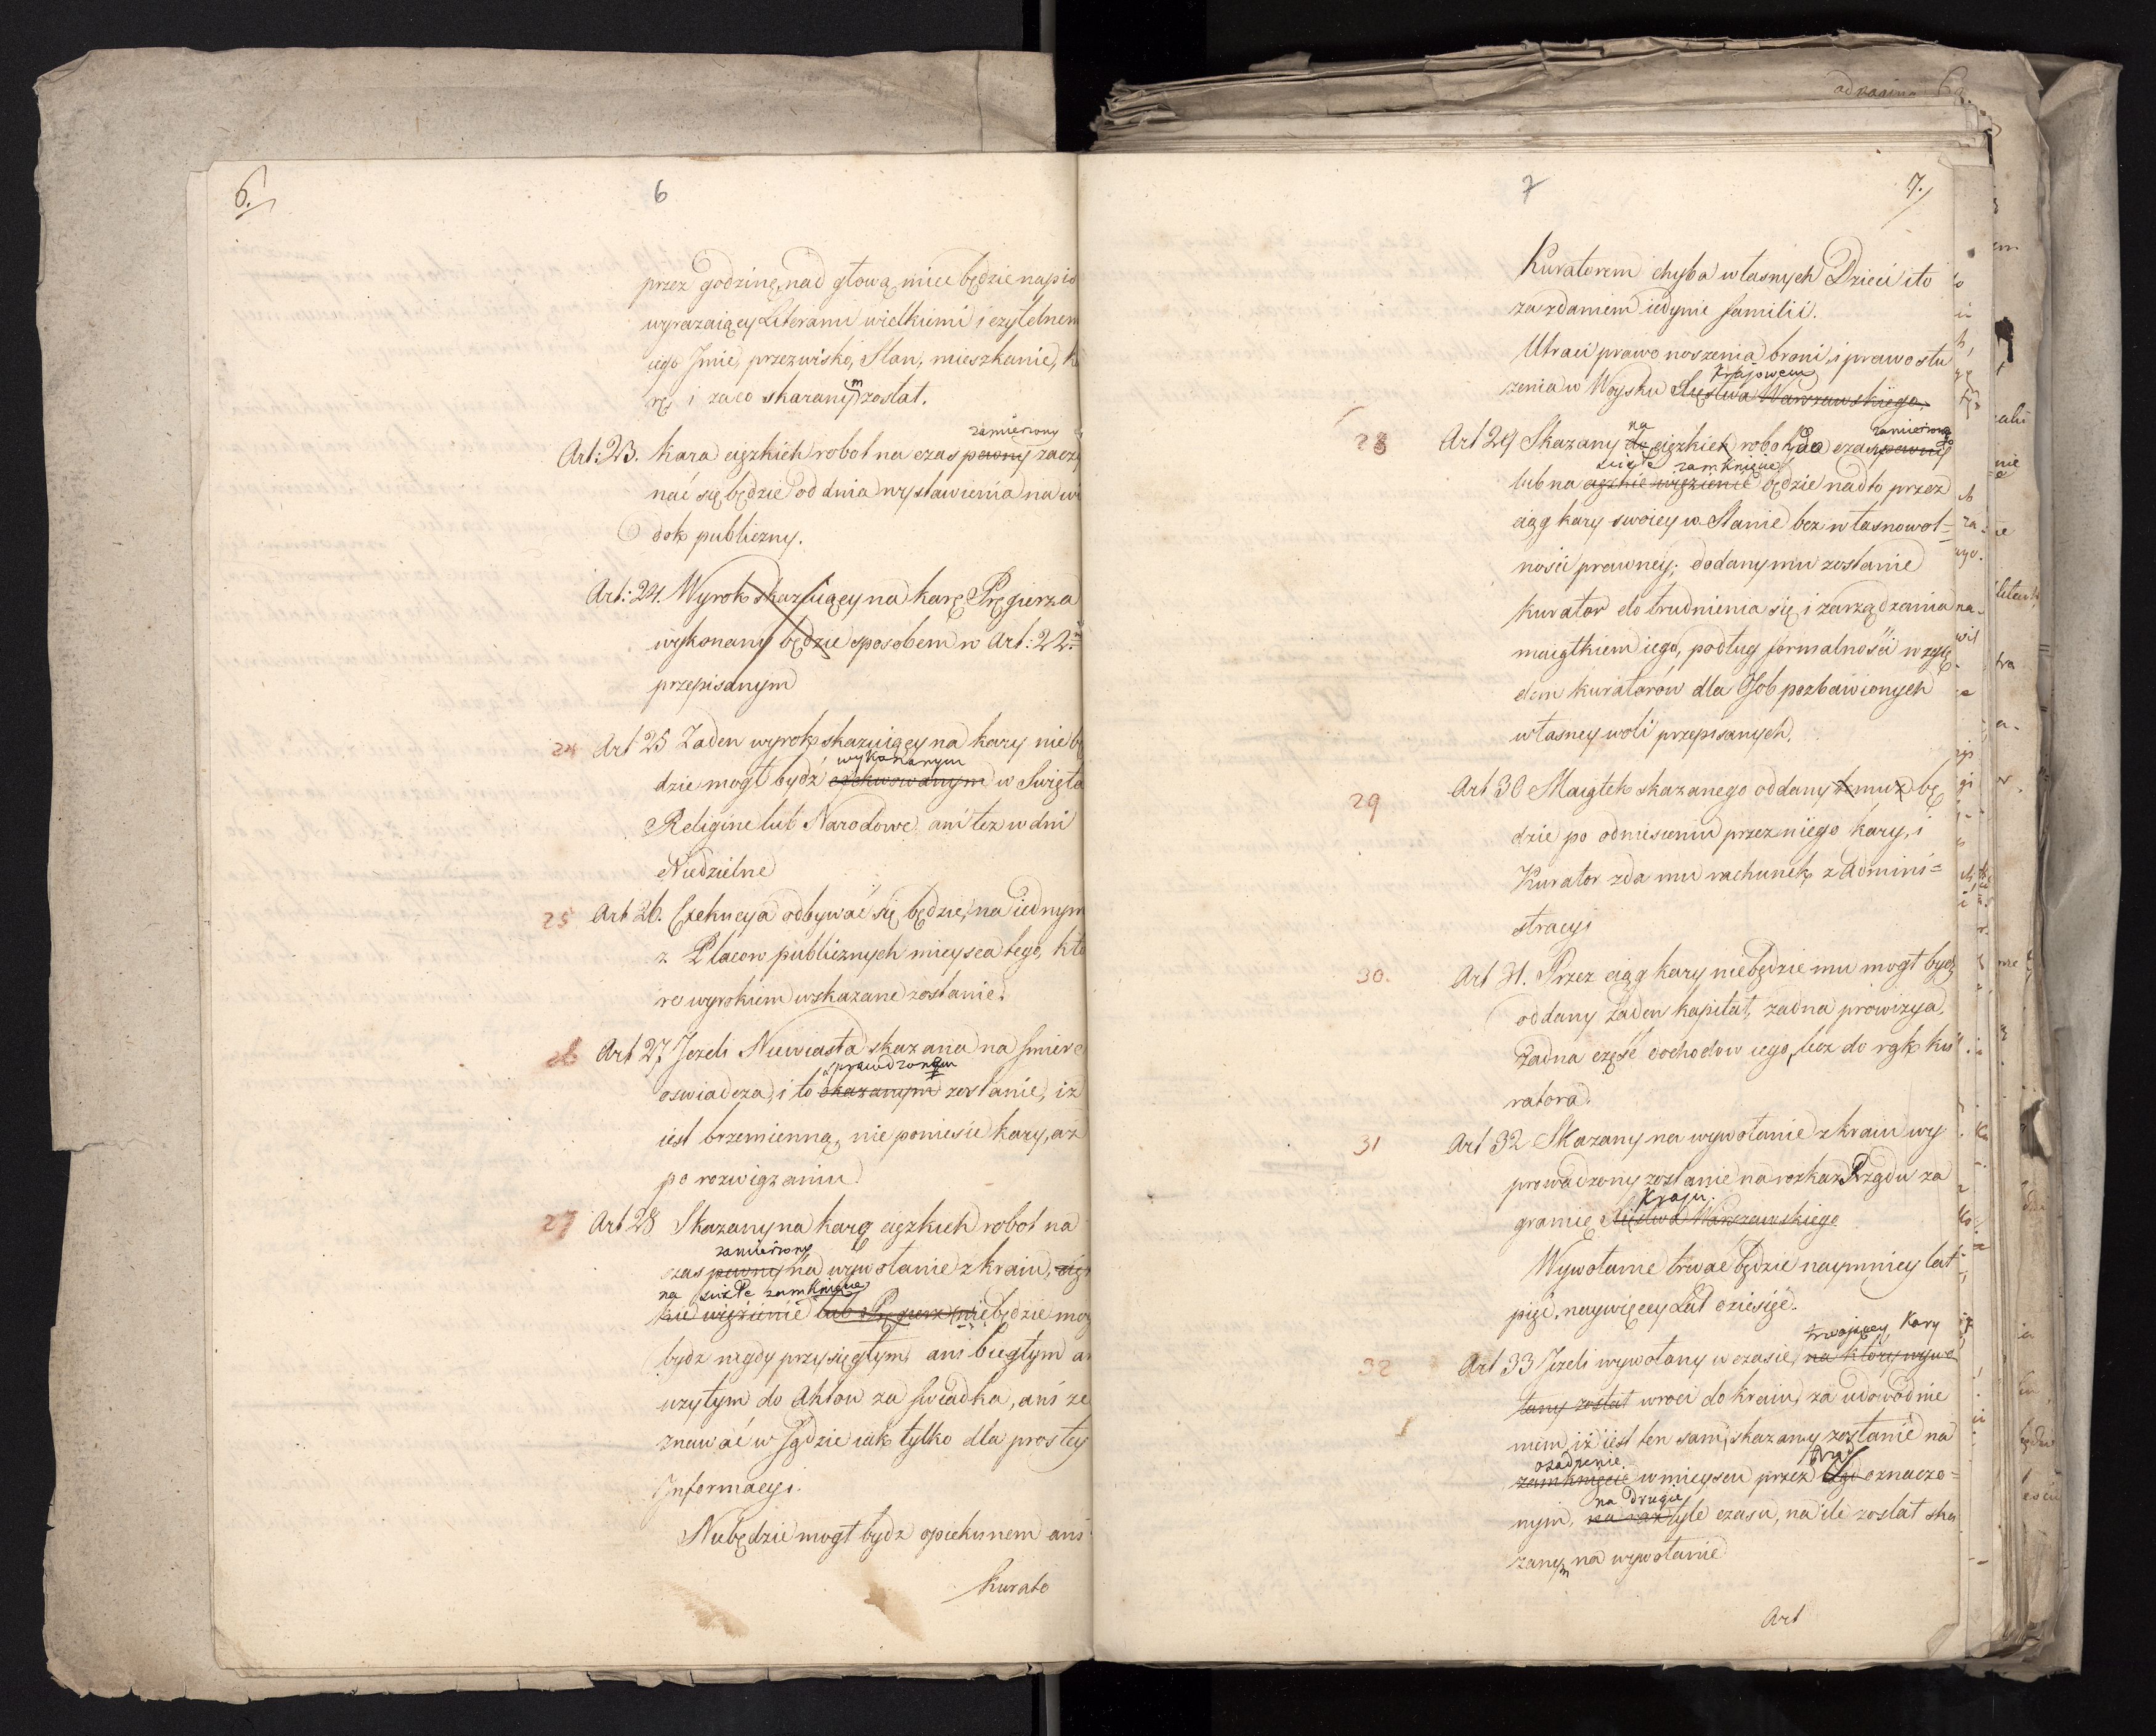 6.
6
przez godzinę, nad głową mieć będzie napis
wyrazaiący Literami wielkiemi i czytelnem
iego Jmie, przezwisko, Stan, mieszkanie, k
rę i za co skaranym został.
zamierzony
Art: 23. Kara ciężkich robot na czas pewny zaczy
nać się będzie od dnia wystawienia na wi
dok publiczny.
Art: 24. Wyrok skazuiący na karę Pręgierza
wykonany będzie sposobem w Art: 22.
przepisanym
24 Art 25 Zaden wyrok skazuiący na kary nie bę
wykonanym
dzie mogł bydź exekwowanym w Swięta
Religiine lub Narodowe ani tez w dni
Niedzielne
25 Art 26. Exekucya odbywać się będzie, na iednym
z Placow publicznych mieysca tego, kto
re wyrokiem wskazane zostanie.
26 Art 27 Jezeli Niewiasta skazana na smierć
sprawdzonem
oswiadcza, i to okazanym zostanie, iz
iest brzemienną, nie poniesie kary, az
po rozwiązaniu
27 Art 28 Skazany na karę ciężkich robot na
zamierzony
czas pewny na wywołanie z kraiu, cięz
na ścisłe zamknięcie
kie więzienie lub Pręgierz nie będzie mog
bydz nigdy przysięgłym, ani biegłym a
uzytym do Aktow za swiadka, ani ze
znawać w Sądzie iak tylko dla prostey
Jnformacyi.
Niebędzie mogł bydz opiekunem ani
Kurato
7
7.
Kuratorem chyba własnych Dzieci i to
za zdaniem iedynie familii.
Utraci prawo noszenia broni i prawo słu
krajowem
zenia w Woysku Xięstwa Warszawskiego.
na zamierzony
28 Art 29 Skazany do ciężkich robot na czas pewny
ścisłe zamknięcie
lub na ciężkie więzienie będzie nadto przez
ciąg kary swoiey w Stanie bez własnowol=
ności prawney; dodany mu zostanie
kurator do trudnienia się i zarządzania
maiątkiem iego, podług formalności wzglę
dem kuratorów dla Osob pozbawionych
własney woli przepisanych.
29 Art 30 Maiątek skazanego oddany temuz bę
dzie po odniesieniu przez niego kary, i
Kurator zda mu rachunek z Admini=
stracyi
30. Art 31. Przez ciąg kary niebędzie mu mogł bydz
oddany zaden kapitał, zadna prowizya,
zadna część dochodow iego, lecz do rąk ku
ratora.
31 Art 32 Skazany na wywołanie z kraiu wy
prowadzony zostanie na rozkaz Rządu za
Kraju.
granicę Xięstwa Warszawskiego
Wywołanie trwać będzie naymniey lat
pięć, naywięcey Lat dziesięć.
trwającey Kary
32 Art 33 Jezeli wywołany w czasie, na który wywo
łany został wroci do kraiu, za udowodnie
niem, iż iest ten sam, skazany zostanie na
osadzenie Rząd
zamknięcie w mieyscu przez oznaczo=
na drugie
nym, na raz tyle czasu, na ile został ska
zanym na wywołanie
Art